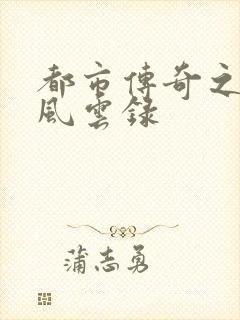 都市傳奇之
風雲錄
蒲志勇